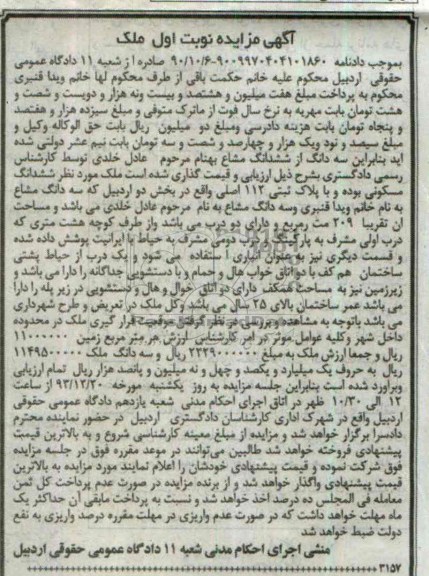 آگهی مزایده نوبت اول ملک
بموجب دادنامه ۹۰۰۹۹۷۰۴۰۴۱۰۱۸۶۰-۹۰/۱۰/۶ صادره از شعبه ۱۱ دادگاه عمومی
حقوقی اردبیل محکوم علیه خانم حکمت باقی از طرف محکوم لها خانم ویدا قنبری
محکوم به پرداخت مبلغ هفت میلیون و هشتصد و بیست ونه هزار و دویست و شصت و
هشت تومان بابت مهریه به نرخ سال فوت از ماترک متوفی و مبلغ سیزده هزار و هفتصد
و پنجاه تومان بابت هزینه دادرسی ومبلغ دو میلیون ریال بابت حق الوکاله وکیل و
مبلغ سیصد و نود ویک هزار و چهارصد و شصت و سه تومان بابت نیم عشر دولتی شده
اید بنابراین سه دانگ از ششدانگ مشاع بهنام مرحوم عادل خلدی توسط کارشناس
رسمی دادگستری بشرح ذیل ارزیابی و قیمت گذاری شده است ملک مورد نظر ششدانگ
مسکونی بوده و با پلاک ثبتی ۱۱۲ اصلی واقع در بخش دو اردبیل که سه دانگ مشاع
به نام خانم ویدا قنبری وسه دانگ مشاع به نام مرحوم عادل خلدی می باشد و مساحت
ان تقریبا ۲۰۹ مت رمربع و دارای دو درب می باشد واز طرف کوچه هشت متری که
درب اولی مشرف به پارکینگ و درب دومی مشرف به حیاط با ایرانیت پوشش داده شده
و قسمت دیگری نیز به عنوان انباری ا ستفاده می شود و یک درب از حیاط پشتی
ساختمان هم کف با دو اتاق خواب هال و حمام و با دستشویی جداگانه را دارا می باشد و
زیرزمین نیز به مساحت همکف دارای دو اتاق خواب و هال و دستشویی در زیر پله را دارا
می باشد عمر ساختمان بالای ۲۵ سال می باشد وکل ملک در تعریض و طرح شهرداری
می باشد باتوجه به مشاهده و بررسی در نظر گرفتن موقعیت قرار گیری ملک در محدوده
داخل شهر وکلیه عوامل موثر در امر کارشناسی ارزش هر متر مربع زمین ۱۱۰۰۰۰۰۰
ریال و جمعا ارزش ملک به مبلغ ۲۲۲۹۰۰۰۰۰۰ ریال و سه دانگ ملک ۱۱۴۹۵۰۰۰۰۰
ریال به حروف یک میلیارد و یکصد و چهل و نه میلیون و پانصد هزار ریال تمام ارزیابی
وبراورد شده است بنابراین جلسه مزایده به روز یکشنبه مورخه ۹۳/۱۲/۲۰ از ساعت
۱۲ الی ۱۰/۳۰ ظهر در اتاق اجرای احکام مدنی شعبه یازدهم دادگاه عمومی حقوقی
اردبیل واقع در شهرک اداری کارشناسان دادگستری اردبیل در حضور نماینده محترم
دادسرا برگزار خواهد شد و مزایده از مبلغ معینه کارشناسی شروع و به بالاترین قیمت
پیشنهادی فروخته خواهد شد طالبین می‌توانند در موعد مقرره فوق در جلسه مزایده
فوق شرکت نموده و قیمت پیشنهادی خودشان را اعلام نمایند مورد مزایده به بالاترین
قیمت پیشنهادی واگذار خواهد شد و از برنده مزایده در صورت عدم پرداخت کل ثمن
معامله فی المجلس ده درصد اخذ خواهد شد و نسبت به پرداخت مابقی آن حداکثر یک
ماه مهلت خواهد داشت که در صورت عدم واریزی در مهلت مقرره درصد واریزی به نفع
دولت ضبط خواهد شد
منشی اجرای احکام مدنی شعبه ۱۱ دادگاه عمومی حقوقی اردبیل
۳۱۵۷